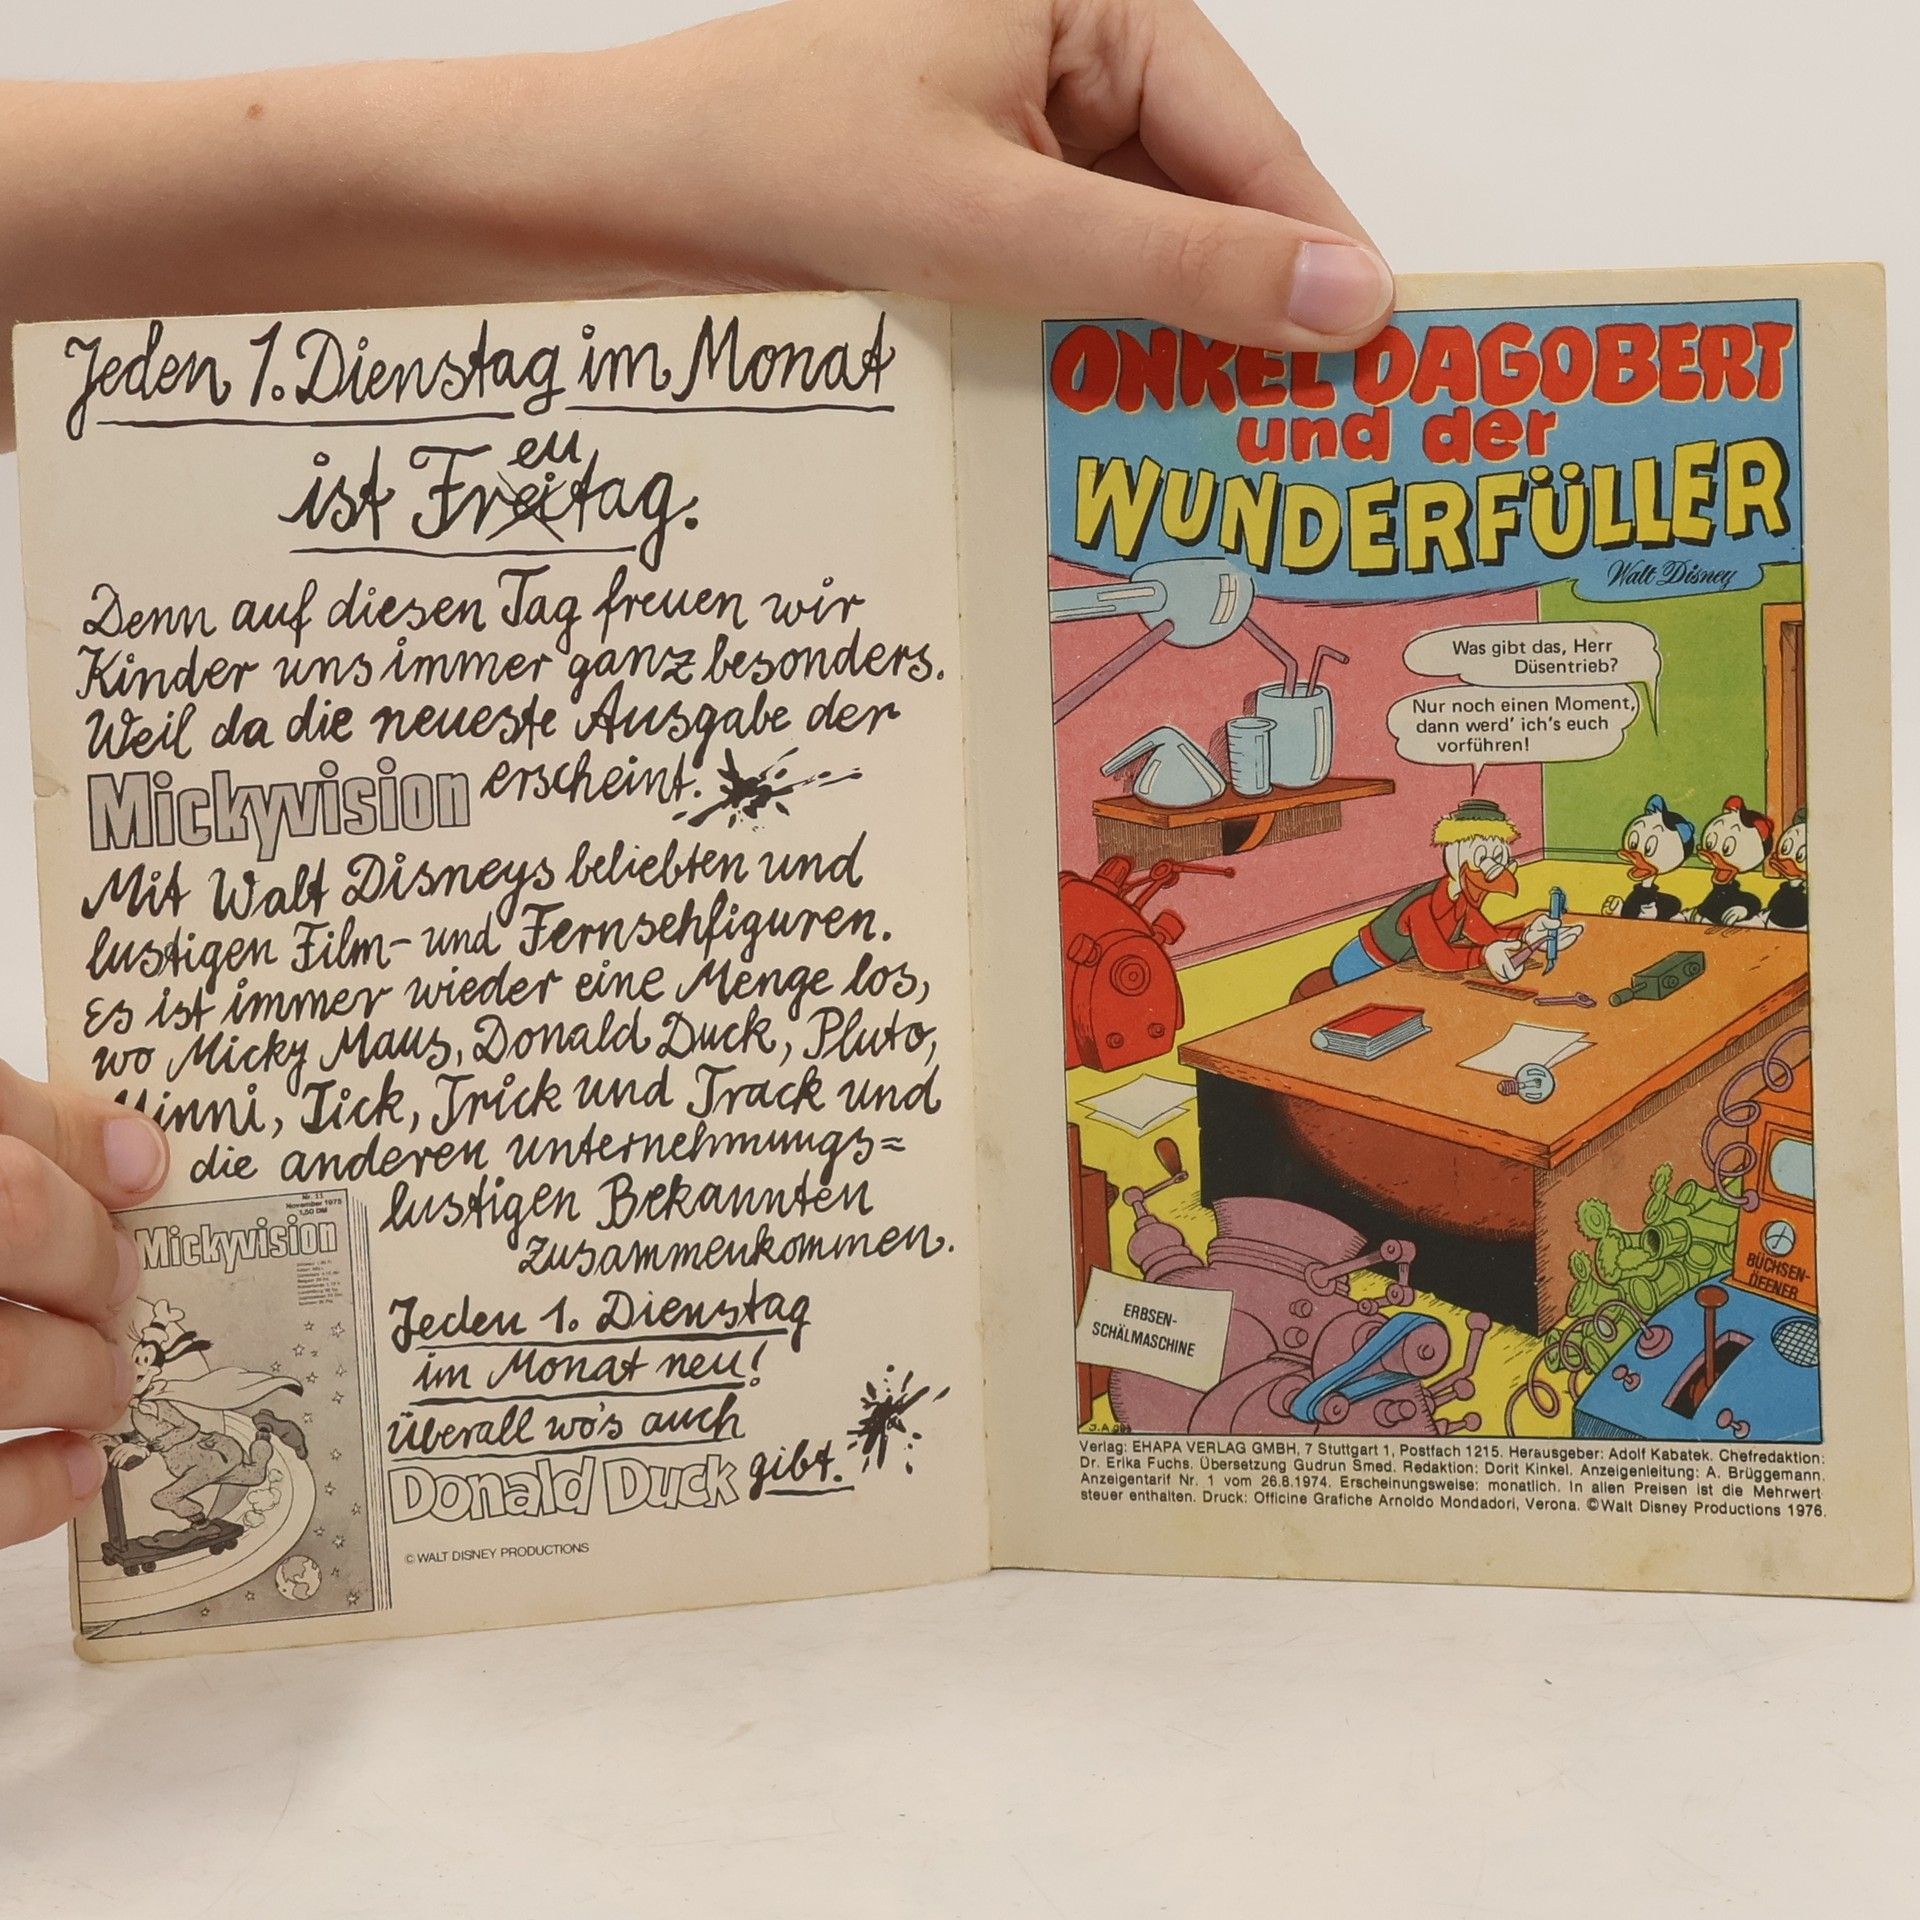 Jeden 1. Dienstag im Monat
ist Freitag.
eu
Denn auf diesen Tag freuen wir
Kinder uns immer ganz besonders.
Weil da die neueste Ausgabe der
Mickyvision erscheint.
Mit Walt Disneys beliebten und
lustigen Film- und Fernsehfiguren.
Es ist immer wieder eine Menge los,
wo Micky Maus, Donald Duck, Pluto,
Minni, Tick, Trick und Track und
die anderen unternehmungs=
lustigen Bekannten
zusammenkommen.
Jeden 1. Dienstag
im Monat neu!
Überall wo's auch
Donald Duck gibt.
© WALT DISNEY PRODUCTIONS
Nr. 11
November 1975
1,50 DM
Mickyvision
ONKEL DAGOBERT
und der
WUNDERFÜLLER
Walt Disney
Was gibt das, Herr
Düsentrieb?
Nur noch einen Moment,
dann werd' ich's euch
vorführen!
BÜCHSEN-
ÖFFNER
ERBSEN-
SCHÄLMASCHINE
Verlag: EHAPA VERLAG GMBH, 7 Stuttgart 1, Postfach 1215. Herausgeber: Adolf Kabatek. Chefredaktion:
Dr. Erika Fuchs. Übersetzung Gudrun Smed. Redaktion: Dorit Kinkel. Anzeigenleitung: A. Brüggemann.
Anzeigentarif Nr. 1 vom 26.8.1974. Erscheinungsweise: monatlich. In allen Preisen ist die Mehrwert
steuer enthalten. Druck: Officine Grafiche Arnoldo Mondadori, Verona. ©Walt Disney Productions 1976.